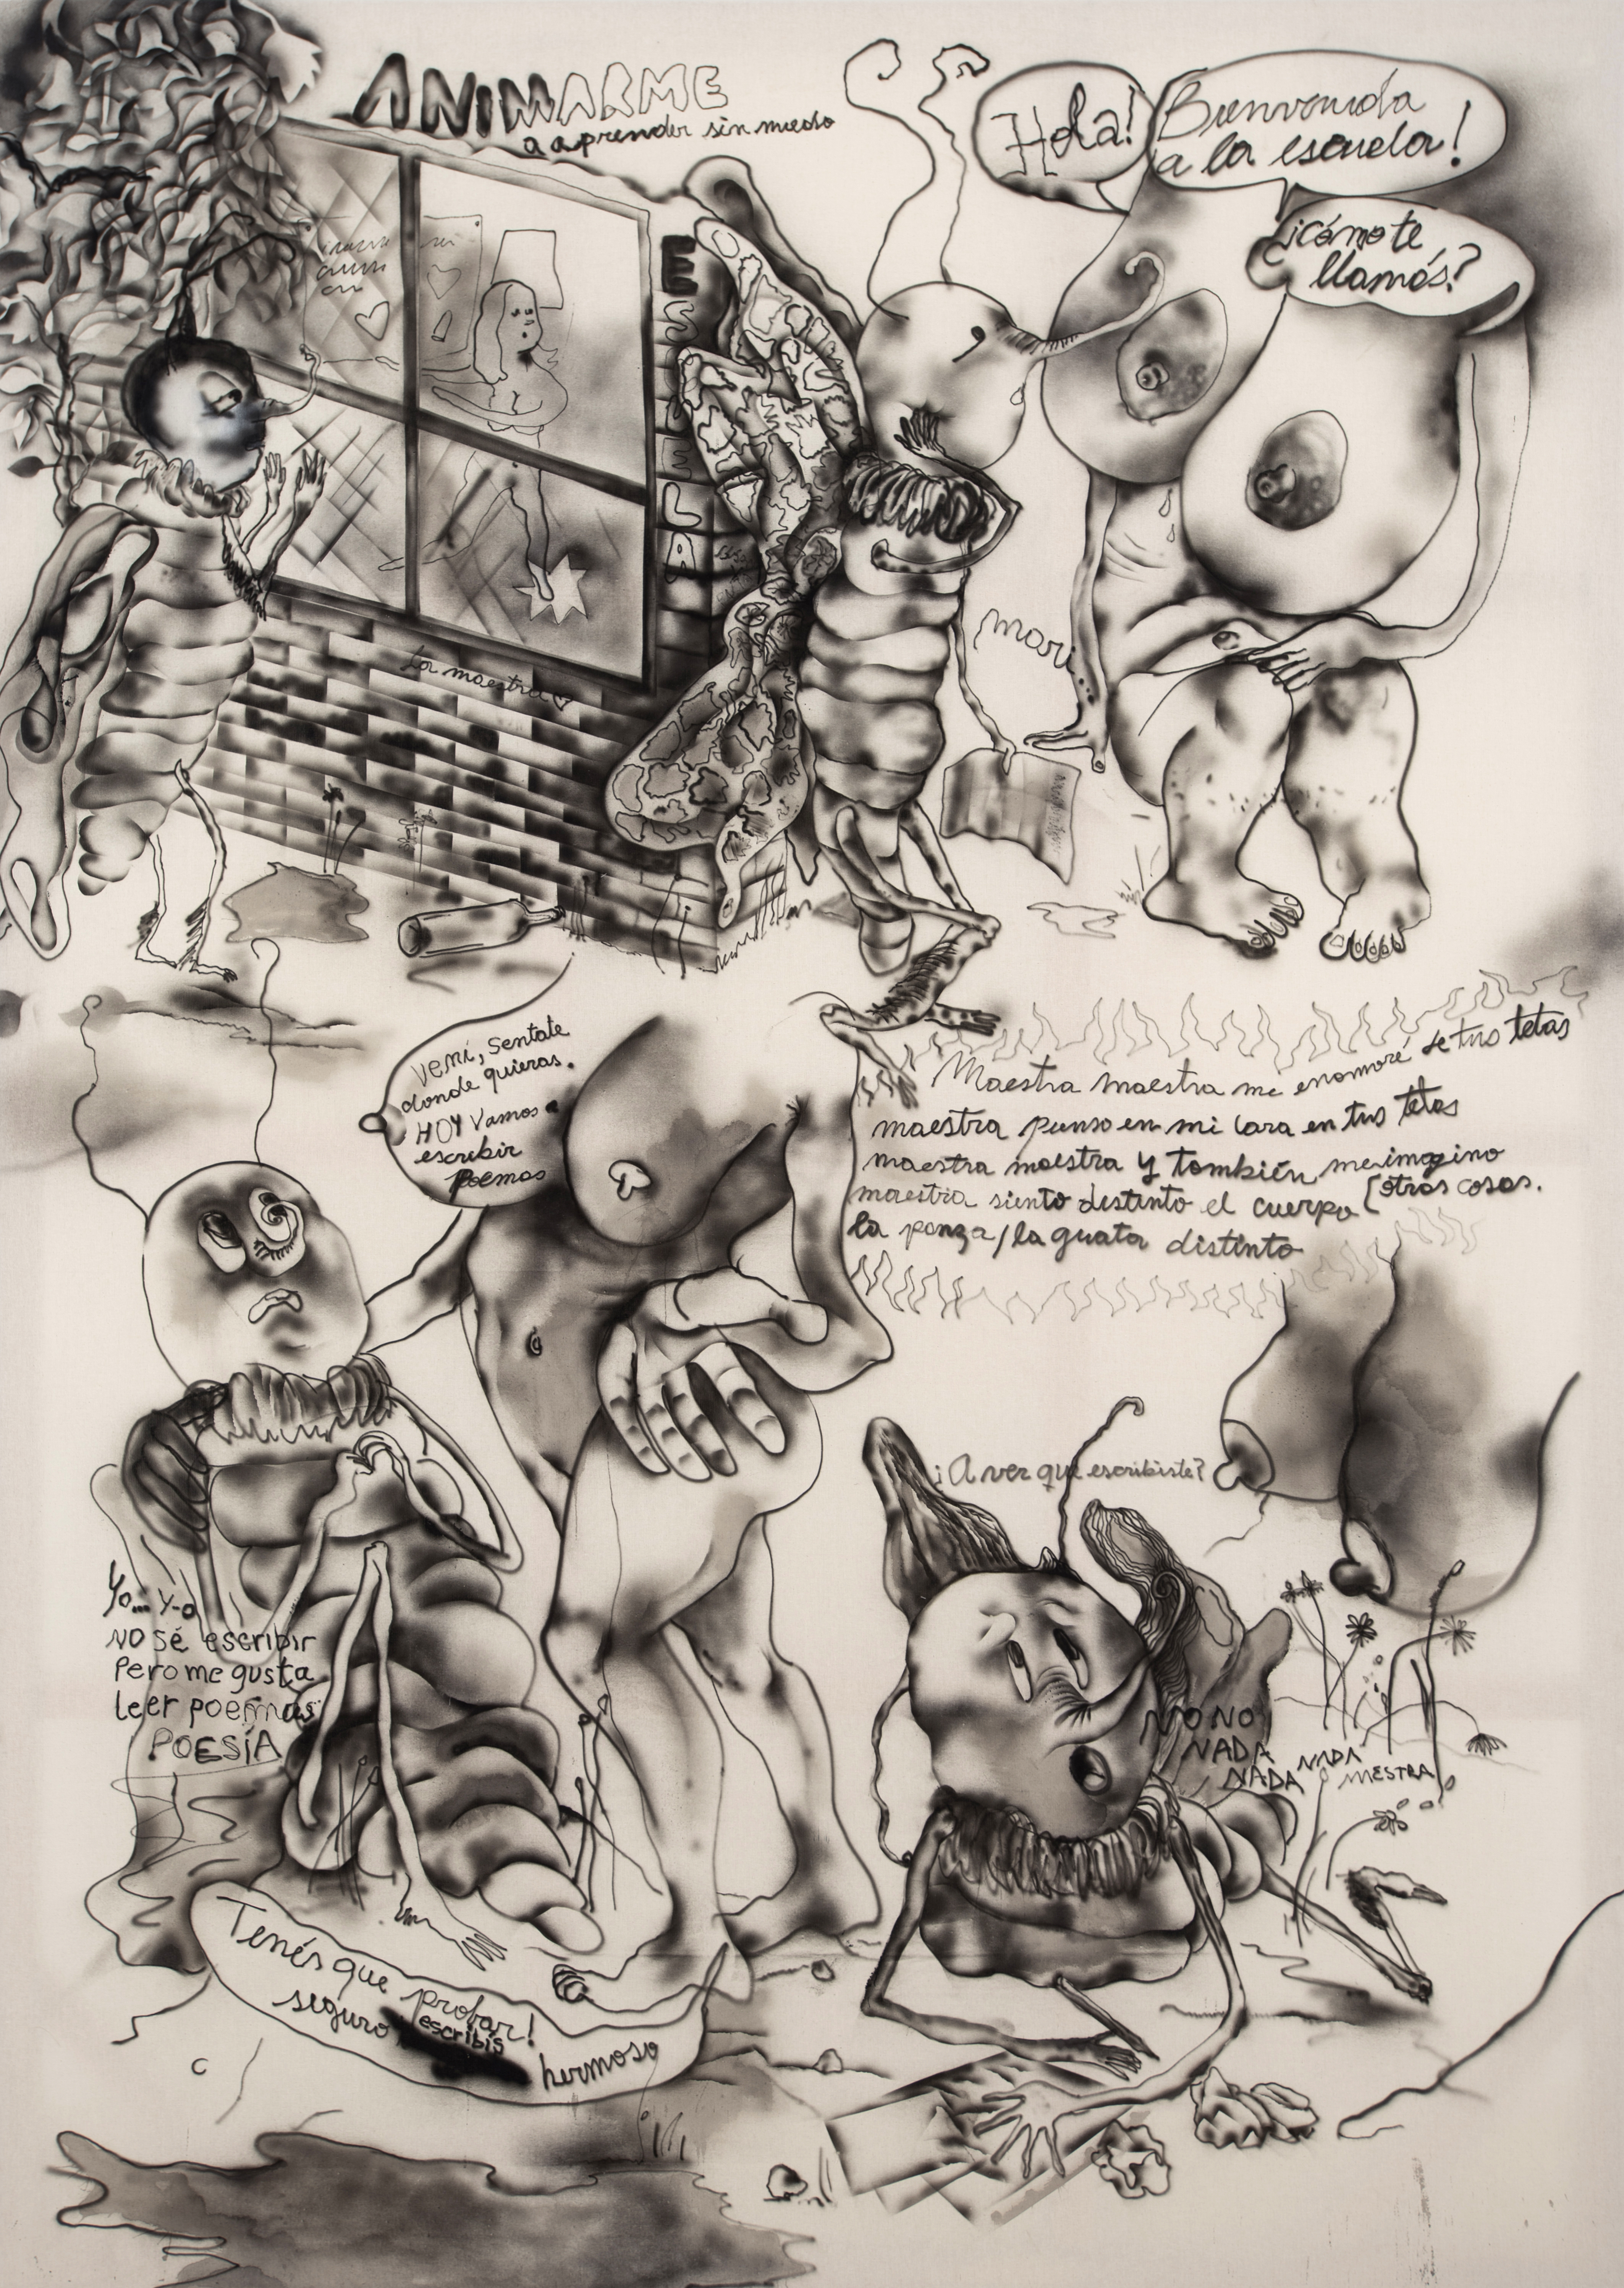 ANIMARME
a aprender sin miedo
Hola!
Bienvenida
a la escuela!
¿cómo te
llamás?
ESCUELA
mari...
La maestra
Vení, sentate
donde quieras.
HOY vamos a
escribir
Poemas
Maestra maestra me enamoré de tus tetas
maestra pienso en mi cara en tus tetas
maestra maestra y también me imagino
otras cosas.
maestra siento distinto el cuerpo
la panza/la guata distinto
¡A ver que escribiste?
Yo... Y-o
NO sé escribir
Pero me gusta
leer poemas
POESÍA
NO NO
NADA
NADA
NADA
MESTRA
Tenés que probar!
seguro escribis
hermoso